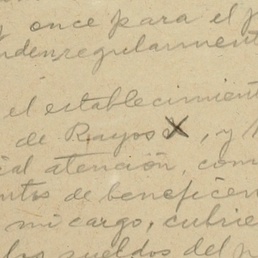 y once para el p
ndenregularmente
el establecimient
de Rayos X, y
ial atención, com
ntos de beneficen
mi cargo, cubrie
los sueldos del p